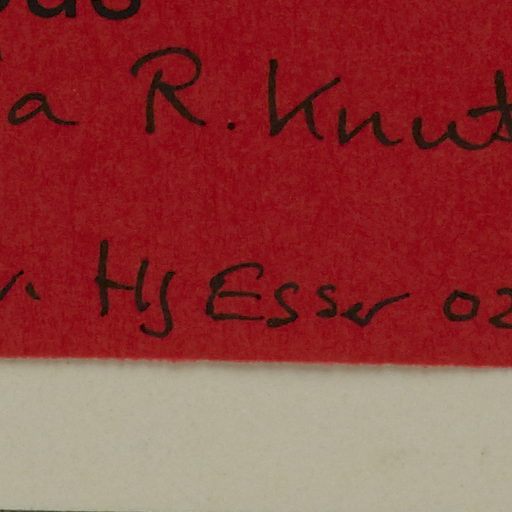 a R. Knut
v. HJ Esser 02